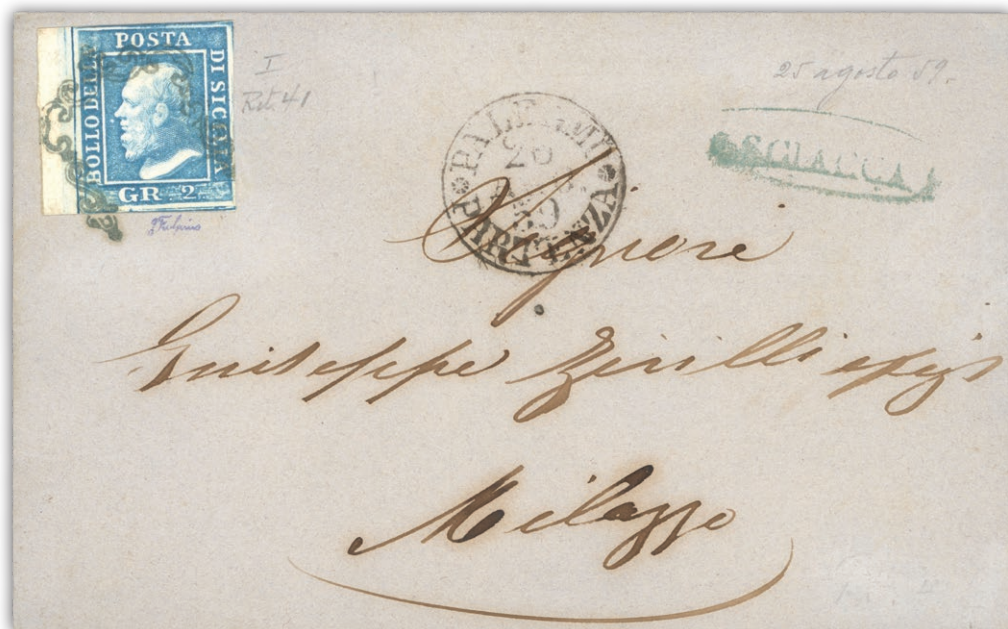 POSTA
BOLLO DELLA
DI SICILIA
GR. 2.
I
Rit. 41
25 agosto 59.
PALERMO
26
59
PARTENZA
SCIACCA
Signore
Giuseppe Zirilli
Milazzo